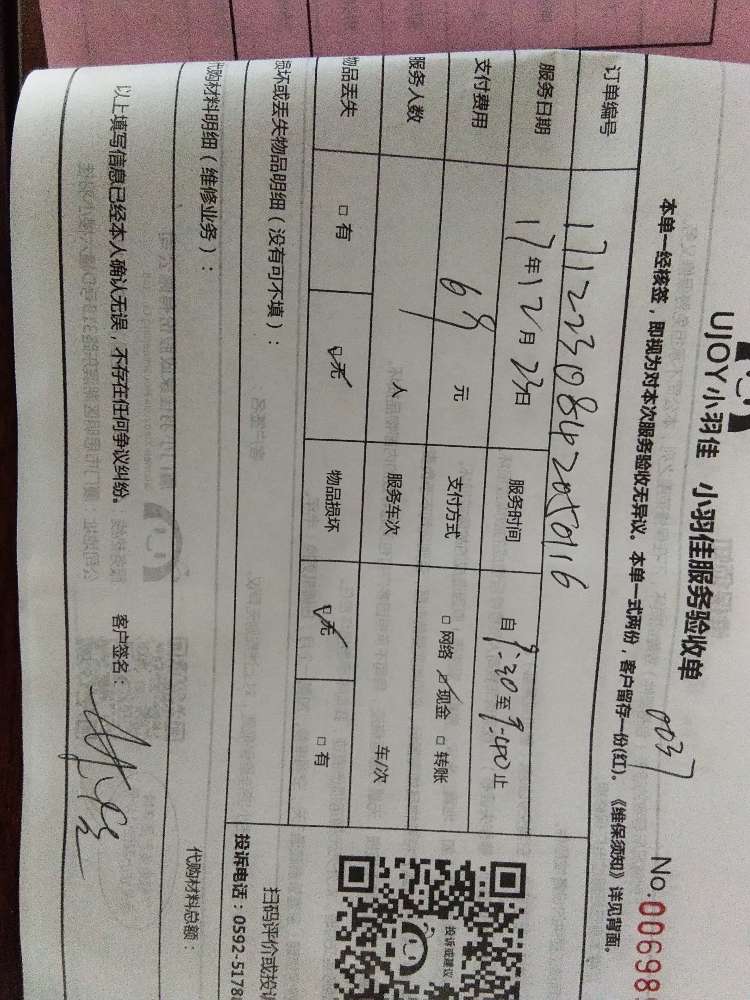 UJOY小羽佳 小羽佳服务验收单 0037 No.00698
本单一经核签，即视为对本次服务验收无异议。本单一式两份，客户留存一份(红)。《维保须知》详见背面。
订单编号 1712230842050116
服务日期 17年12月23日 服务时间 自9:30至9:40止
支付费用 69元 支付方式 □网络 ☑现金 □转账
服务人数 1人 服务车次 车/次
物品丢失 □有 ☑无 物品损坏 ☑无 □有
损坏或丢失物品明细（没有可不填）：
代购材料明细（维修业务）： 代购材料总额：
以上填写信息已经本人确认无误，不存在任何争议纠纷。 客户签名：
投诉或建议
扫码评价或投诉
投诉电话：0592-5178